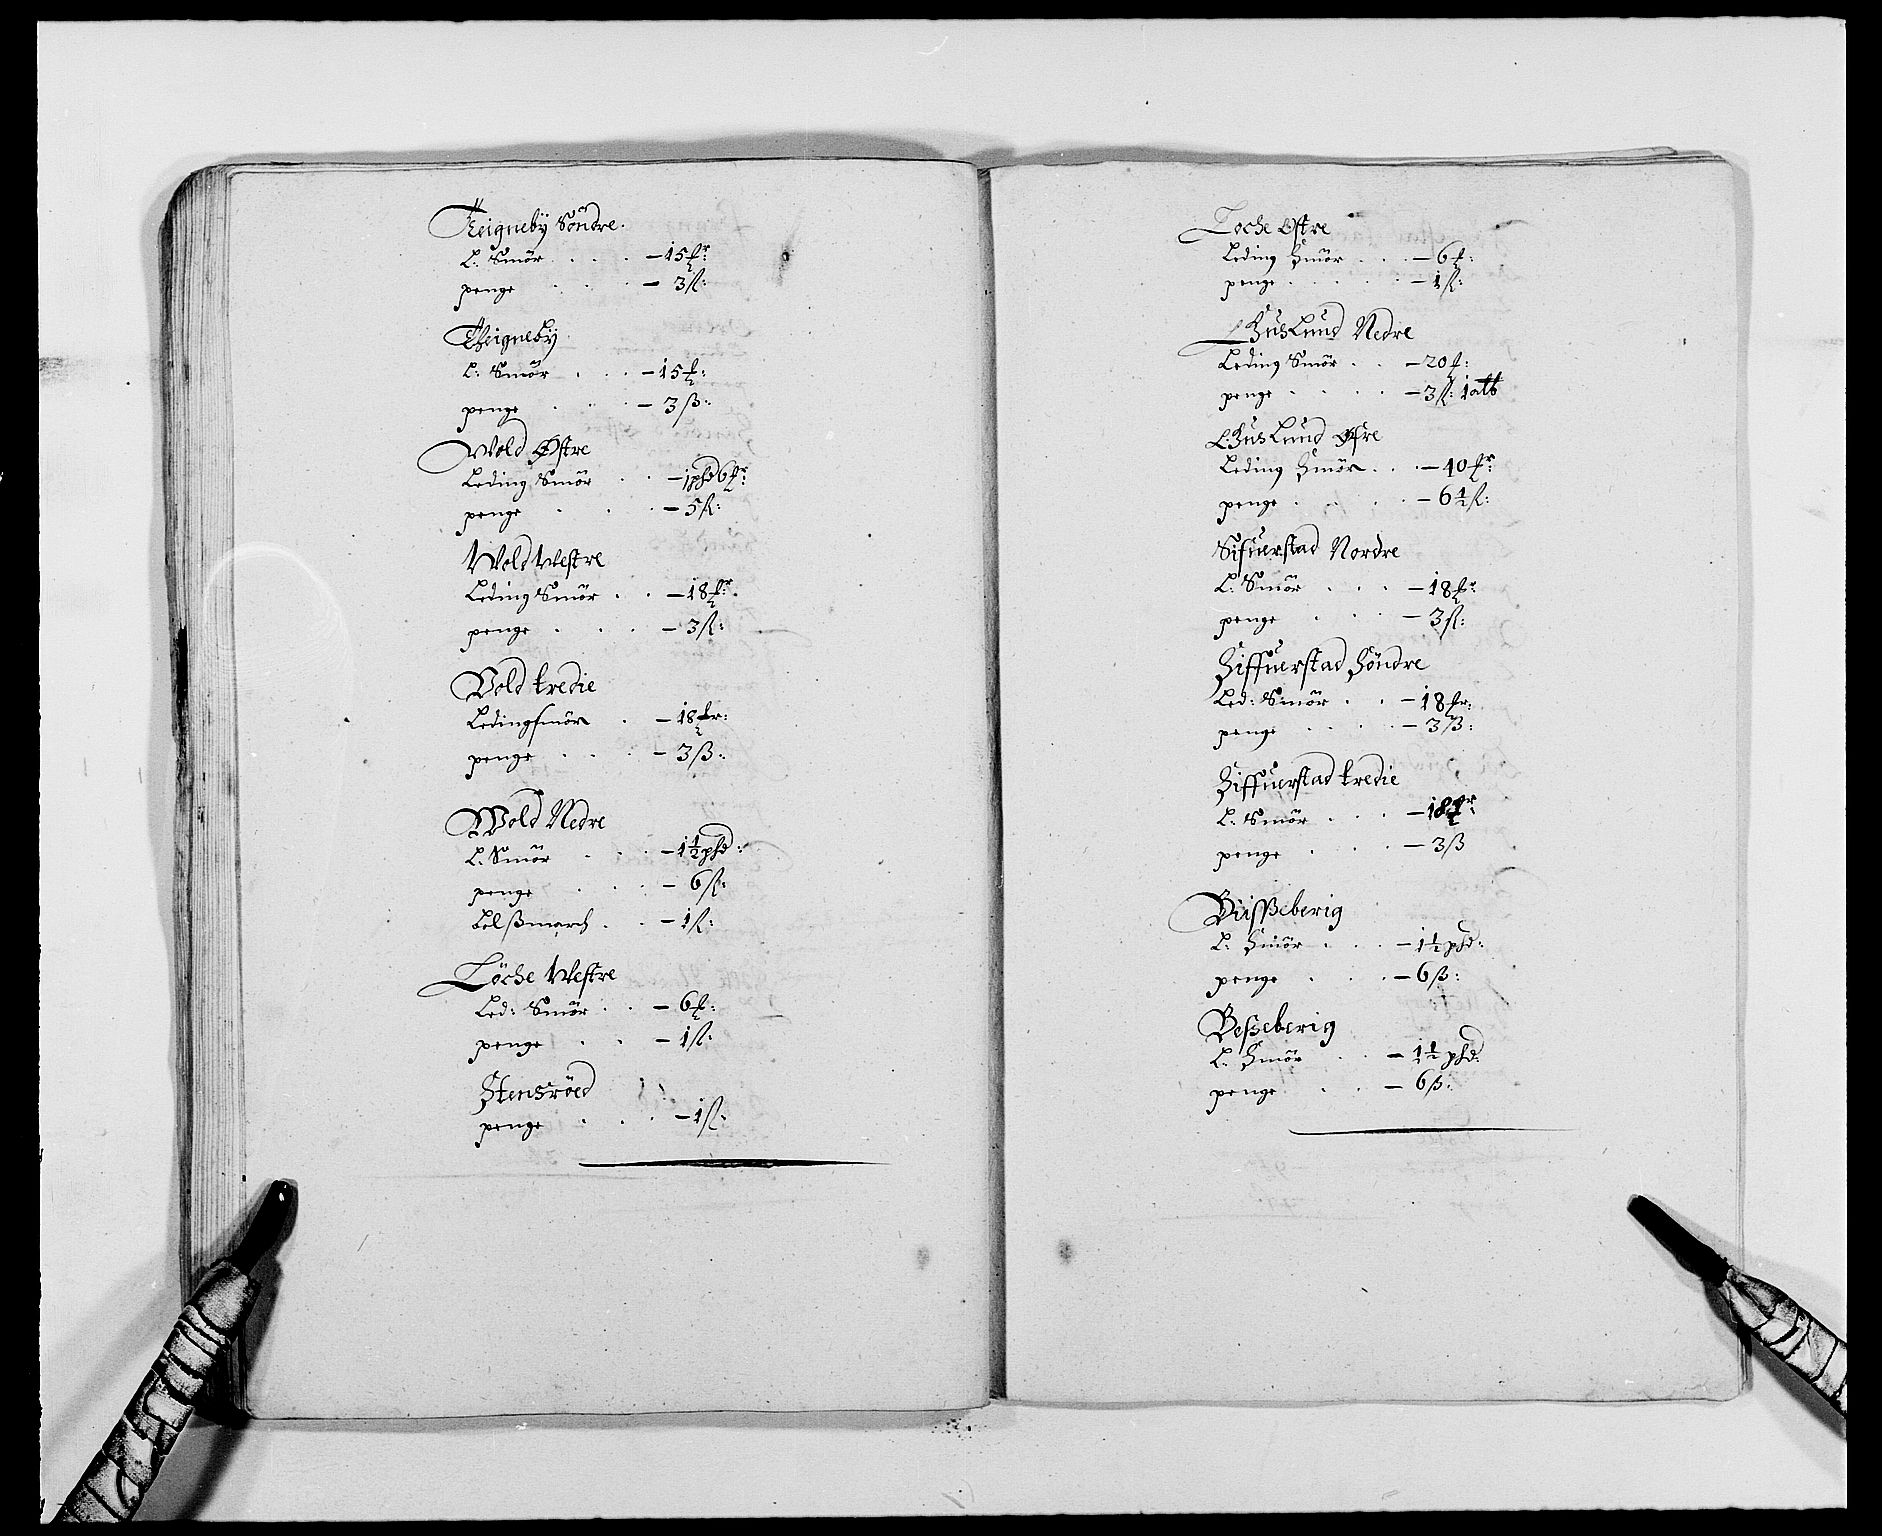 Teigneby Söndre.
L: Smör . . . . – 15 ℔r:
penge . . . – 3 ß:
Theigneby
L: Smör . . . – 15 ℔:
penge . . . – 3 ß:
Wold Østre
Leding Smör . . – 1 phd 6 ℔r:
penge . . . – 5 ß:
Wold Westre
Leding Smör . . – 18 ℔r.
penge . . . – 3 ß:
Vold tredie
Ledingsmör . – 18 ℔r:
penge . . . – 3 ß:
Wold Nedre
L. Smör . . . – 1½ phd:
penge . . . – 6 ß:
. . – 1 ß:
Löche Westre
Led: Smör . . – 6 ℔:
penge . . – 1 ß:
Stensröed
penge . . . – 1 ß:
Loche Østre
Leding Smör . . . – 6 ℔:
penge . . . . . – 1 ß:
Huslund Nedre
Leding Smör . . – 20 ℔:
penge . . . . – 3 ß: 1 alb
Huslund Øfre
Leding Smör . . . – 40 ℔r:
penge . . . . – 6½ ß:
Sifuerstad Nordre
L: Smör . . . – 18 ℔r
penge . . . – 3 ß:
Siffuerstad Söndre
Led: Smör . . – 18 ℔r:
penge . . . . – 3 ß:
Siffuerstad tredie
L: Smör . . . – 18 ℔r
penge . . . – 3 ß
L: Smör . . . – 1½ phd:
penge . . . – 6 ß:
Besseberig
L. Smör . . – 1½ phd:
penge . . – 6 ß: